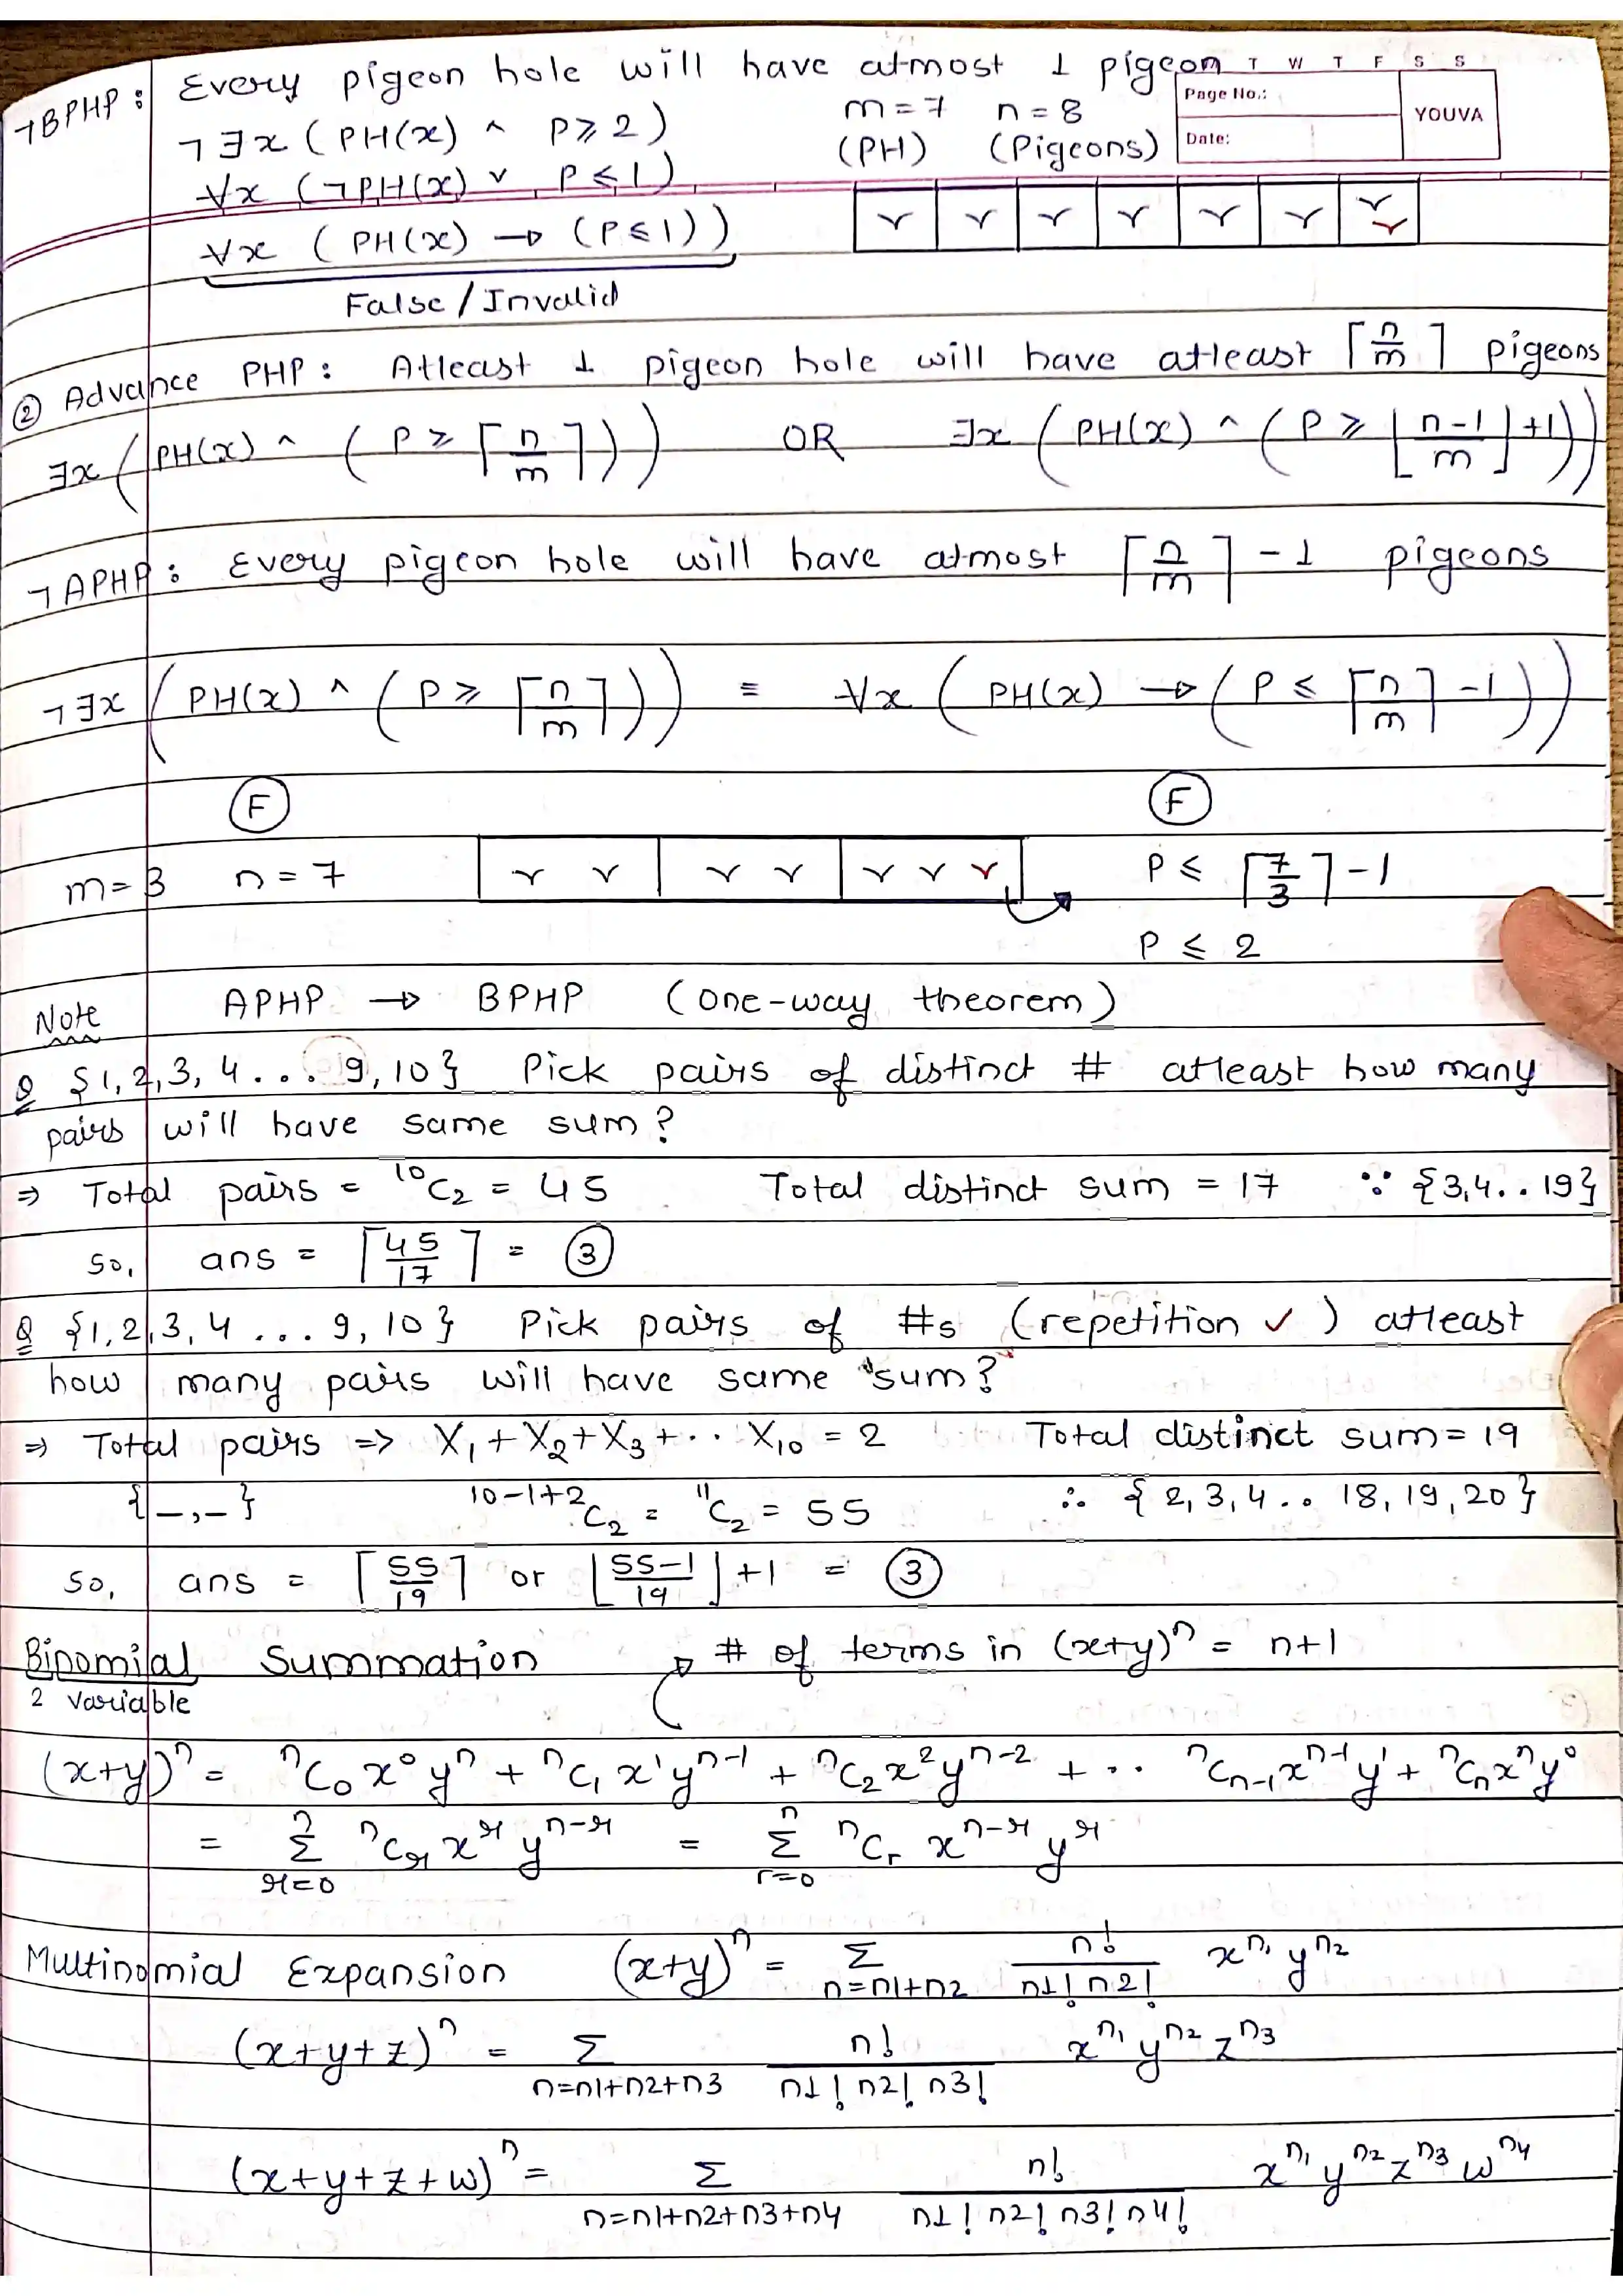 T W T F S S
Page No.:
Date:
YOUVA
¬BPHP : Every pigeon hole will have atmost 1 pigeon
¬∃x (PH(x) ^ P≥2) m=7 n=8
∀x (¬PH(x) ∨ P≤1) (PH) (Pigeons)
∀x (PH(x) → (P≤1))
False/Invalid
② Advance PHP : Atleast 1 pigeon hole will have atleast ⌈n/m⌉ pigeons
∃x (PH(x) ^ (P ≥ ⌈n/m⌉)) OR ∃x (PH(x) ^ (P ≥ ⌊n-1/m⌋+1))
¬APHP : Every pigeon hole will have atmost ⌈n/m⌉ -1 pigeons
¬∃x (PH(x) ^ (P ≥ ⌈n/m⌉)) ≡ ∀x (PH(x) → (P ≤ ⌈n/m⌉ -1))
F F
m=3 n=7 P ≤ ⌈7/3⌉ -1
P ≤ 2
Note APHP → BPHP (one-way theorem)
Q {1,2,3,4... 9,10} Pick pairs of distinct # atleast how many
pairs will have same sum?
⇒ Total pairs = ¹⁰C₂ = 45 Total distinct sum = 17 ∵ {3,4..19}
so, ans = ⌈45/17⌉ = ③
Q {1,2,3,4 ... 9,10} Pick pairs of #s (repetition ✓) atleast
how many pairs will have same "sum?"
⇒ Total pairs => X₁+X₂+X₃+.. X₁₀ = 2 Total distinct sum=19
{_,_} ¹⁰⁻¹⁺²C₂ = ¹¹C₂ = 55 ∴ {2,3,4.. 18,19,20}
so, ans = ⌈55/19⌉ or ⌊55-1/19⌋+1 = ③
Binomial Summation # of terms in (x+y)ⁿ = n+1
2 variable
(x+y)ⁿ = ⁿC₀x⁰yⁿ + ⁿC₁x¹yⁿ⁻¹ + ⁿC₂x²yⁿ⁻² + .. ⁿCₙ₋₁xⁿ⁻¹y¹ + ⁿCₙxⁿy⁰
= Σ_{r=0}^{n} ⁿCᵣ xʳ yⁿ⁻ʳ = Σ_{r=0}^{n} ⁿCᵣ xⁿ⁻ʳ yʳ
Multinomial Expansion (x+y)ⁿ = Σ_{n=n1+n2} n!/n1! n2! x^{n₁} y^{n₂}
(x+y+z)ⁿ = Σ_{n=n1+n2+n3} n!/n1! n2! n3! x^{n₁} y^{n₂} z^{n₃}
(x+y+z+w)ⁿ = Σ_{n=n1+n2+n3+n4} n!/n1! n2! n3! n4! x^{n₁} y^{n₂} z^{n₃} w^{n₄}